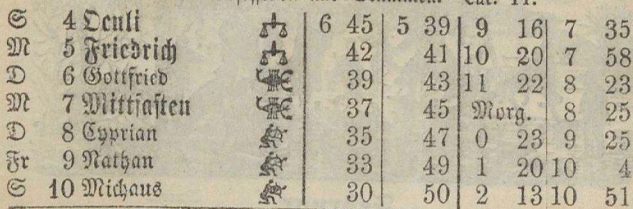 S 4 Oculi 6 45 5 39 9 16 7 35
M 5 Friedrich 42 41 10 20 7 58
D 6 Gottfried 39 43 11 22 8 23
M 7 Mittfasten 37 45 Morg. 8 25
D 8 Cyprian 35 47 0 23 9 25
Fr 9 Nathan 33 49 1 20 10 4
S 10 Michaus 30 50 2 13 10 51